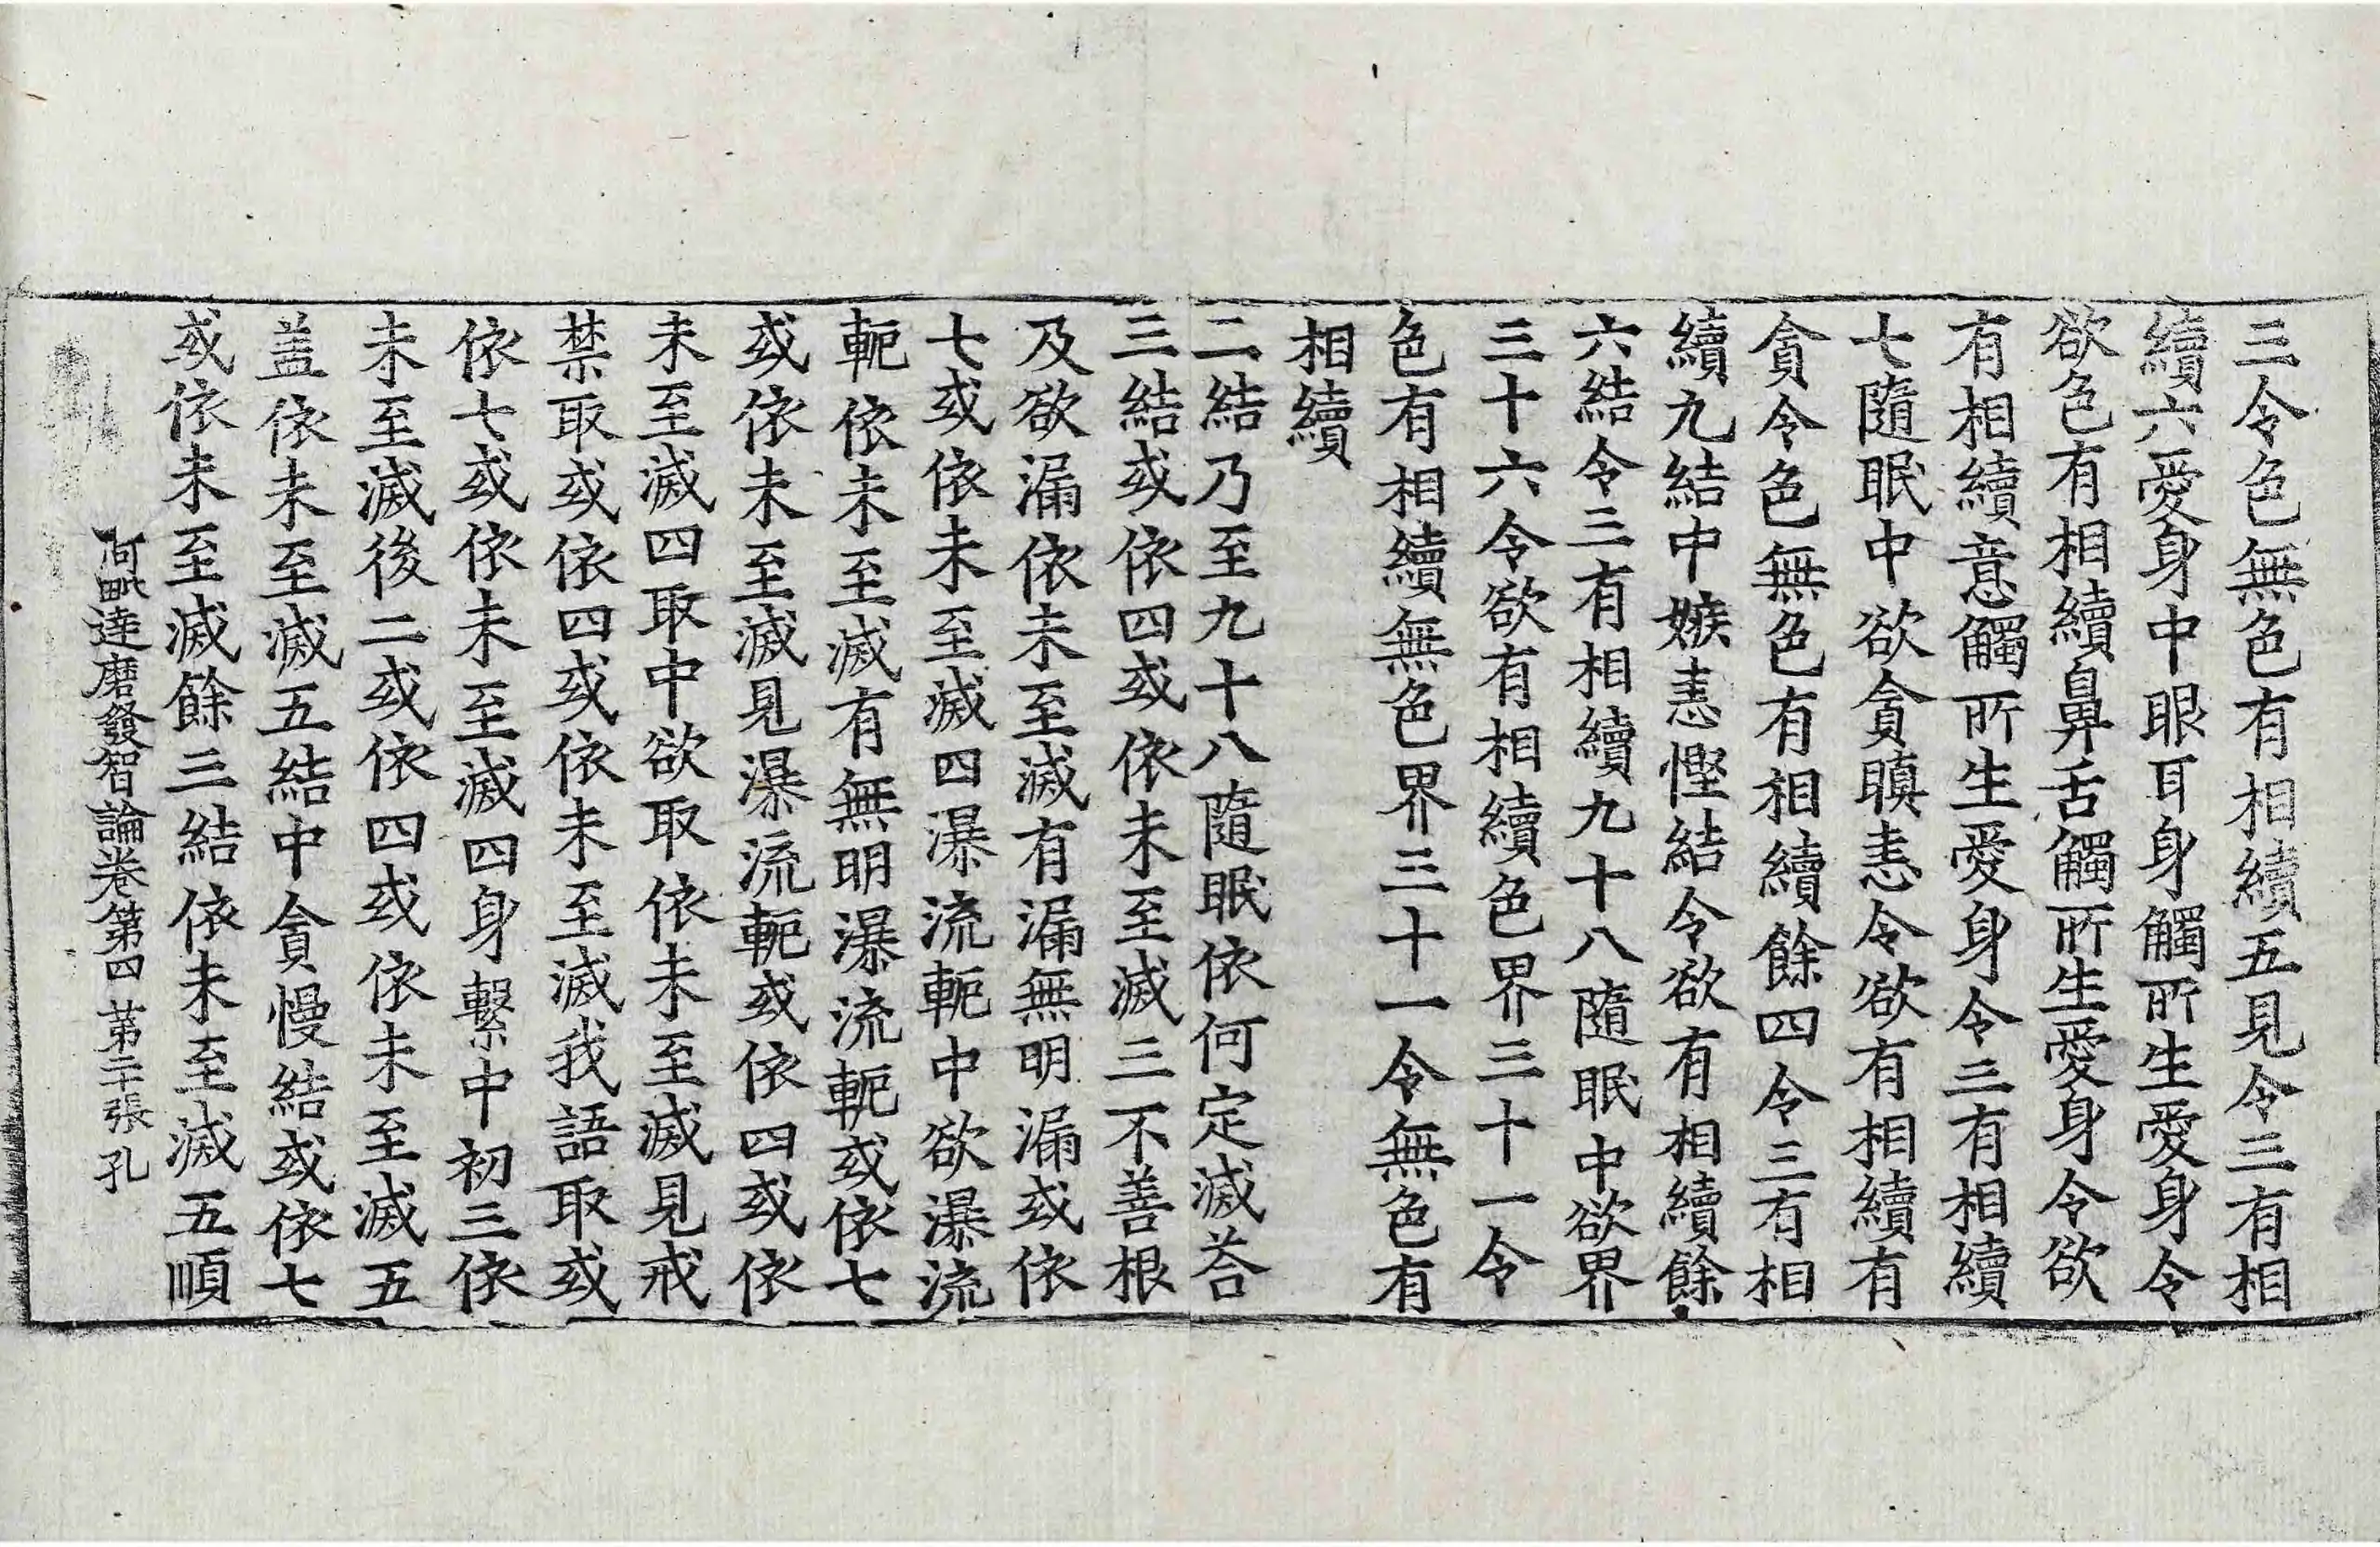 三令色無色有相續五見令三有相
續六愛身中眼耳身觸所生愛身令
欲色有相續鼻舌觸所生愛身令欲
有相續意觸所生愛身令三有相續
七隨眠中欲貪瞋恚令欲有相續有
貪令色無色有相續餘四令三有相
續九結中嫉恚慳結令欲有相續餘
六結令三有相續九十八隨眠中欲界
三十六令欲有相續色界三十一令
色有相續無色界三十一令無色有
相續
二結乃至九十八隨眠依何定滅荅
三結或依四或依未至滅三不善根
及欲漏依未至滅有漏無明漏或依
七或依未至滅四瀑流軛中欲瀑流
軛依未至滅有無明瀑流軛或依七
或依未至滅見瀑流軛或依四或依
未至滅四取中欲取依未至滅見戒
禁取或依四或依未至滅我語取或
依七或依未至滅四身繫中初三依
未至滅後二或依四或依未至滅五
蓋依未至滅五結中貪慢結或依七
或依未至滅餘三結依未至滅五順
阿毗達磨發智論卷第四 第二十張 孔